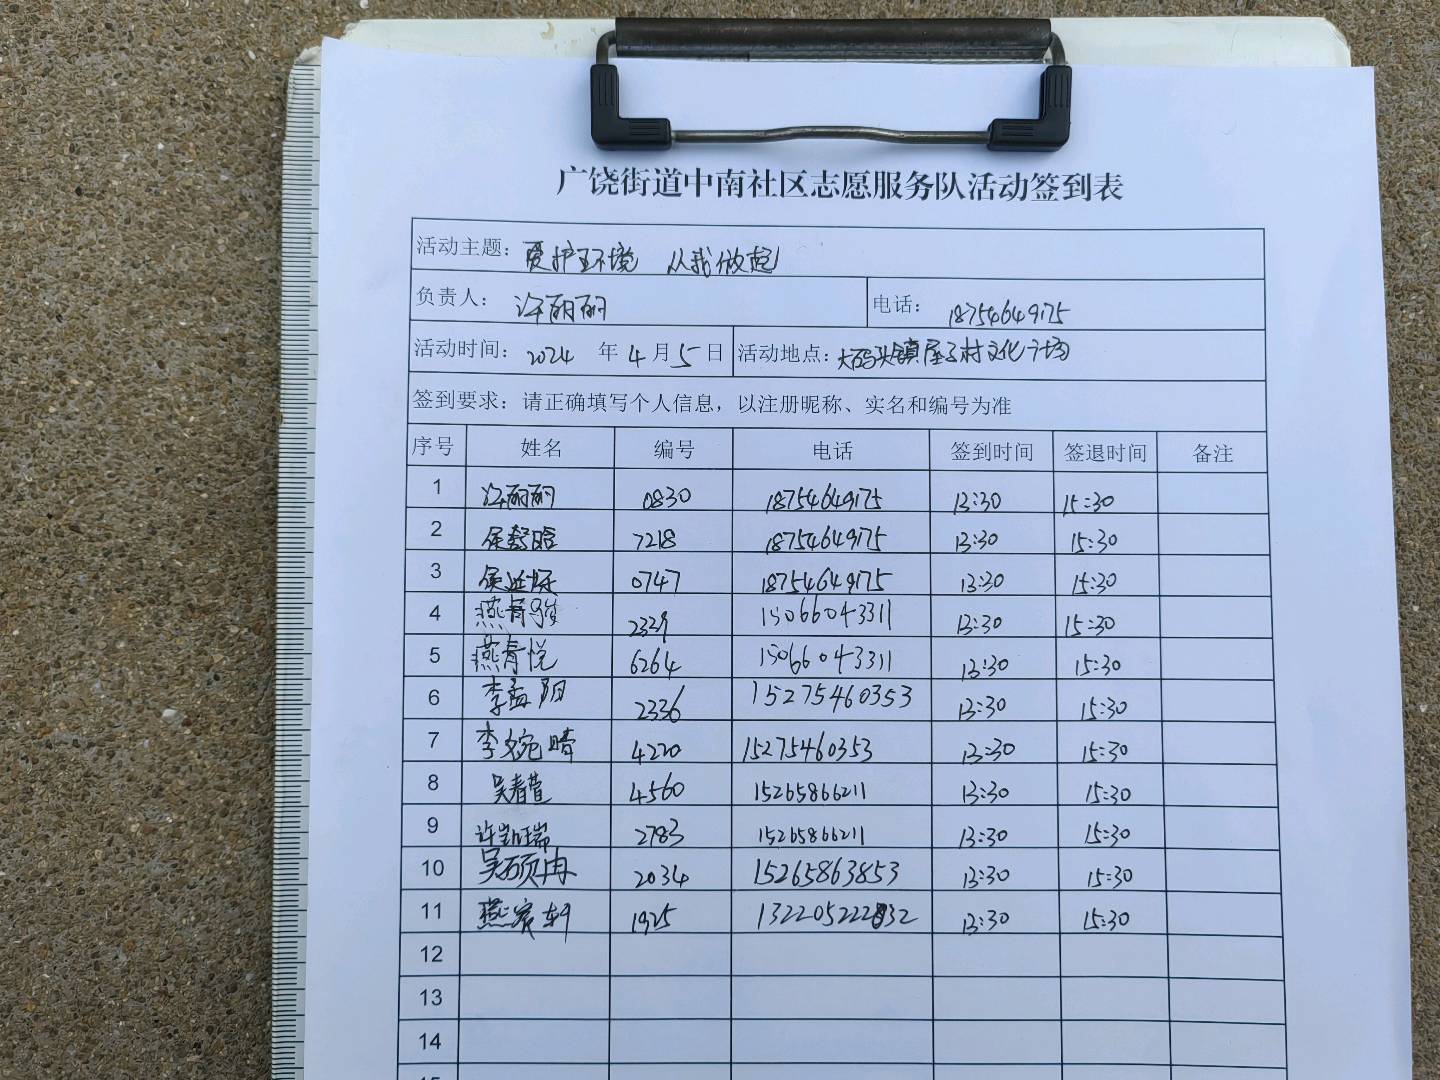 广饶街道中南社区志愿服务队活动签到表
活动主题：爱护环境 从我做起
负责人：许丽丽 电话：18754649175
活动时间：2024 年 4 月 5 日 活动地点：大码头镇屋子村文化广场
签到要求：请正确填写个人信息，以注册昵称、实名和编号为准
序号 姓名 编号 电话 签到时间 签退时间 备注
1 许丽丽 0830 18754649175 13:30 15:30
2 侯舒晗 7218 18754649175 13:30 15:30
3 0747 18754649175 13:30 15:30
4 燕青骏 2329 15066043311 13:30 15:30
5 燕青悦 6264 15066043311 13:30 15:30
6 李孟阳 2336 15275460353 13:30 15:30
7 李宛晴 4220 15275460353 13:30 15:30
8 吴春萱 4560 15265866211 13:30 15:30
9 许凯瑞 2783 15265866211 13:30 15:30
10 吴硕冉 2034 15265863853 13:30 15:30
11 燕家轩 1925 13:30 15:30
12
13
14